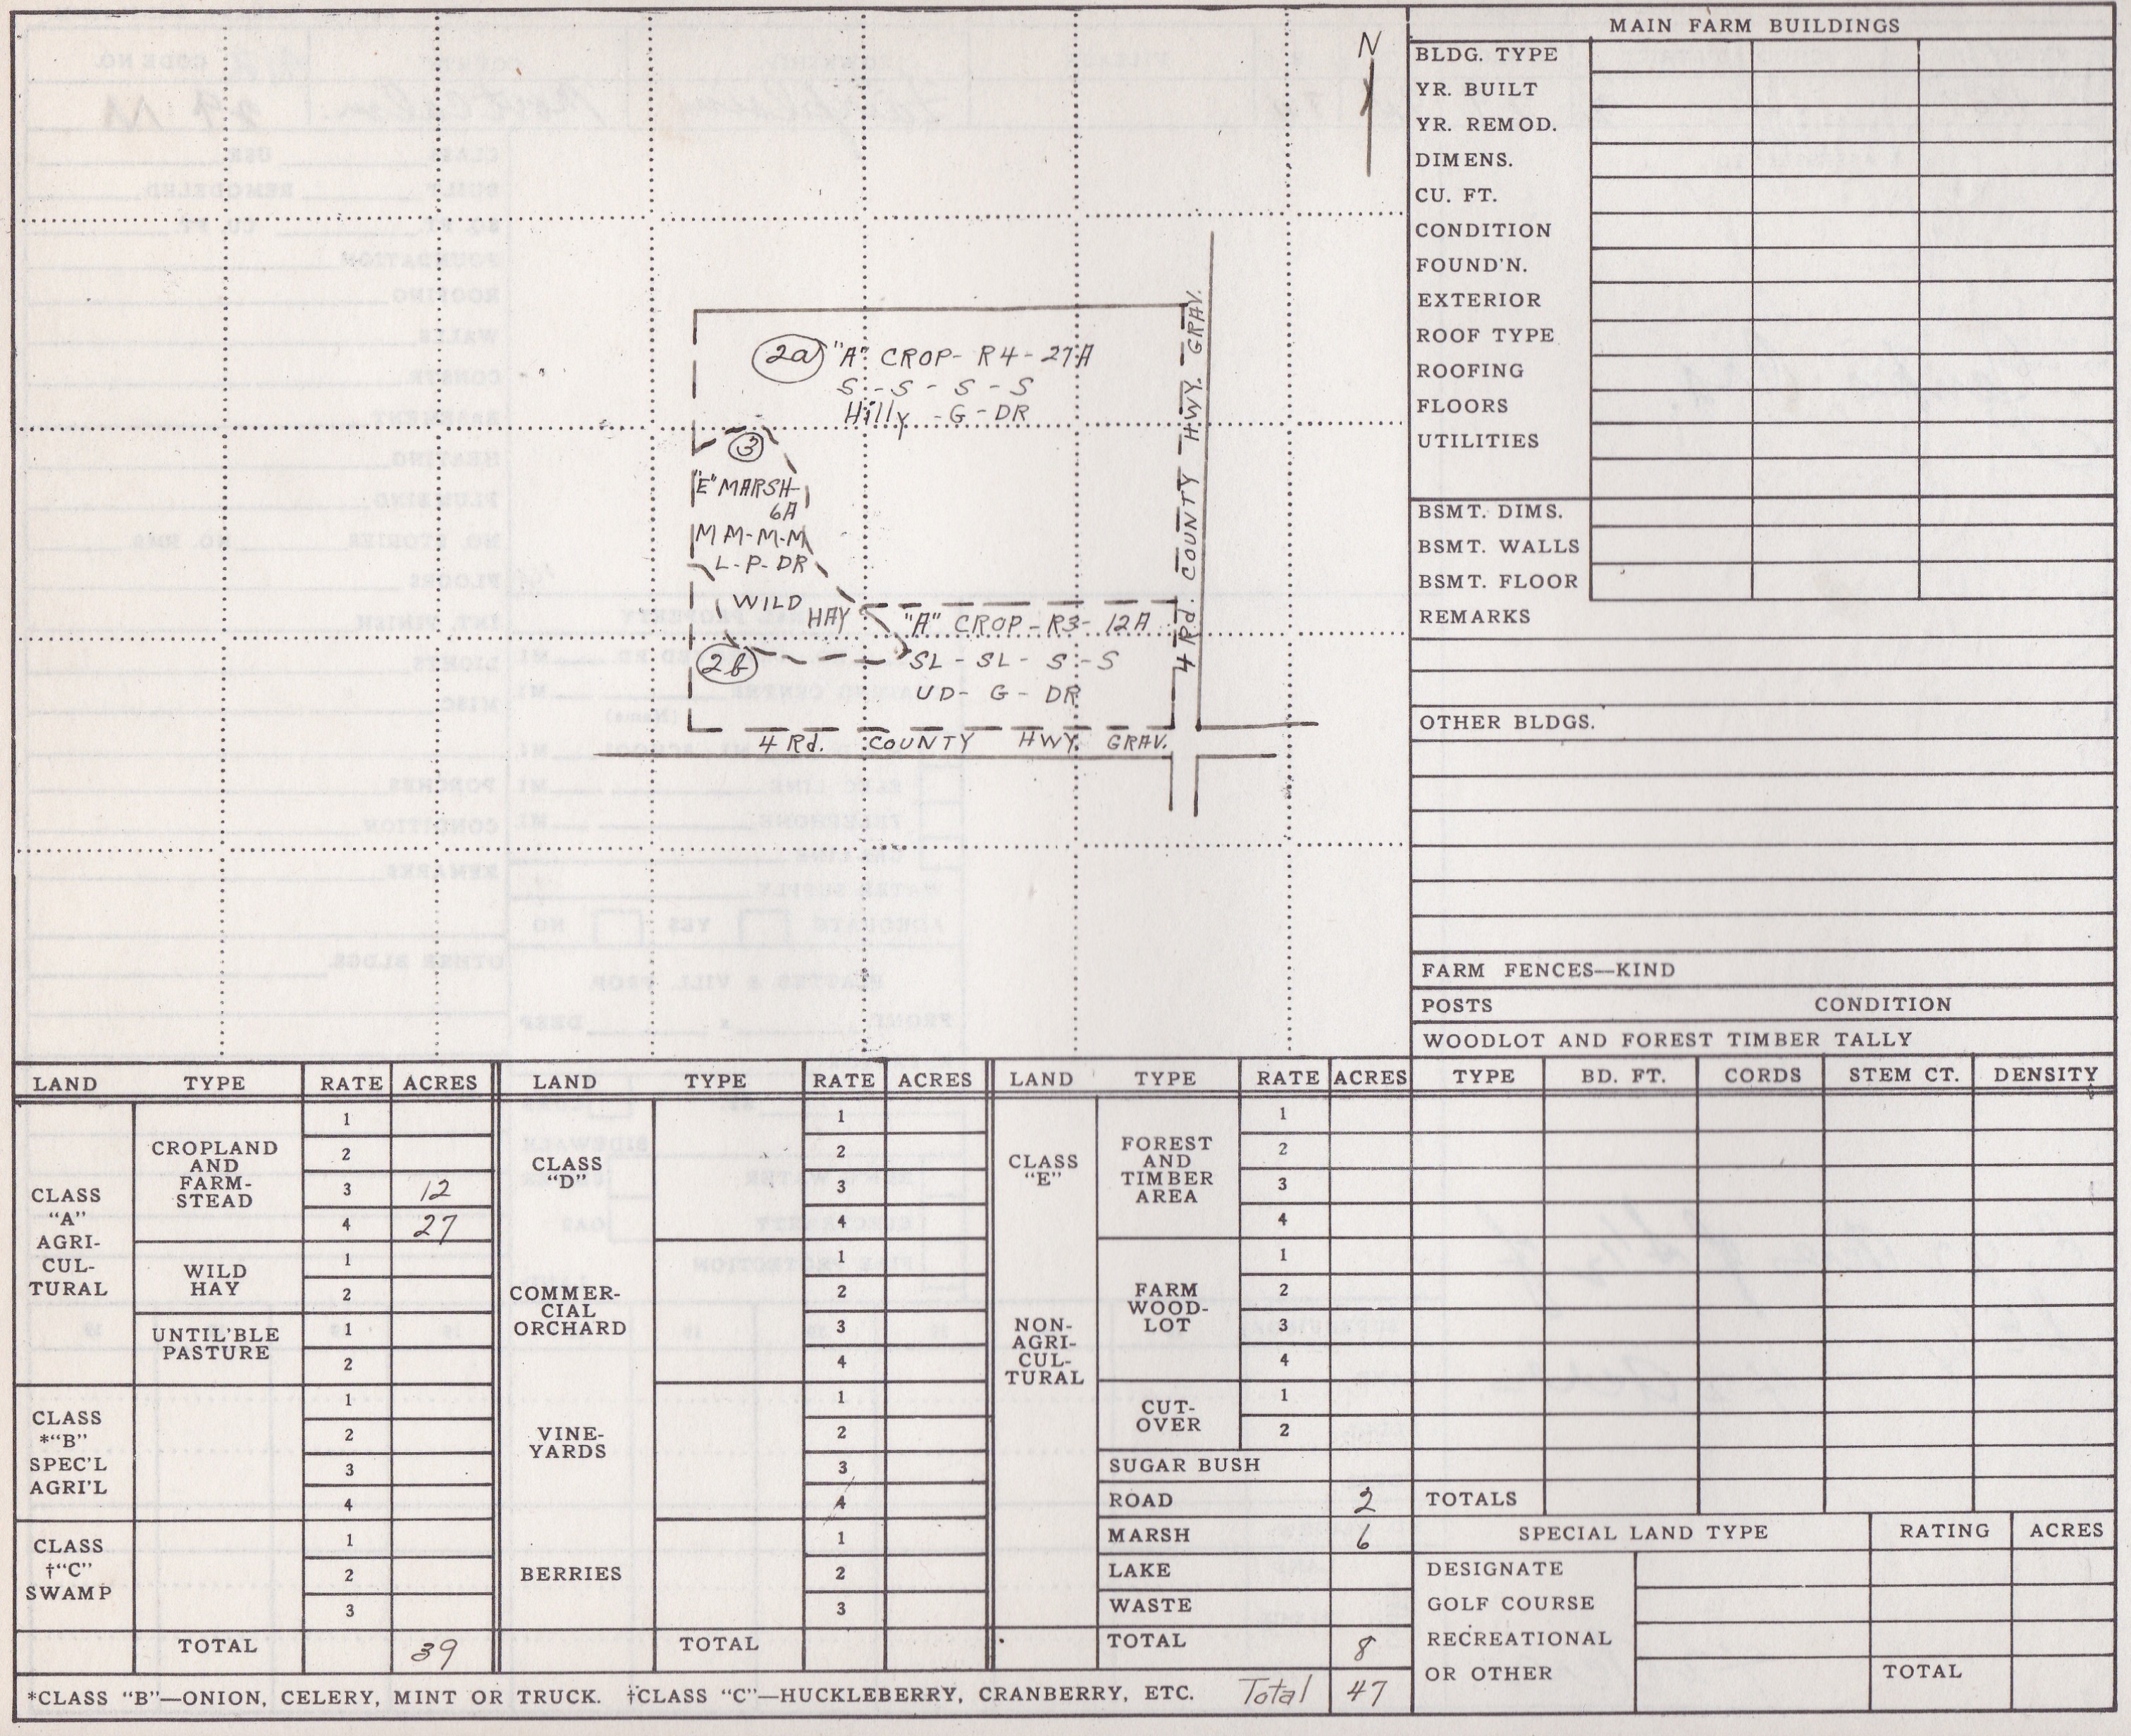 N
2a "A" CROP- R4- 27A
S - S - S - S
Hilly - G - DR
3
"E" MARSH-
6A
M M- M- M
L - P - DR
WILD HAY
"A" CROP - R3- 12A
2b
SL - SL - S - S
UD - G - DR
4 Rd. COUNTY HWY. GRAV.
4 Rd. COUNTY HWY. GRAV.
MAIN FARM BUILDINGS
BLDG. TYPE
YR. BUILT
YR. REMOD.
DIMENS.
CU. FT.
CONDITION
FOUND'N.
EXTERIOR
ROOF TYPE
ROOFING
FLOORS
UTILITIES
BSMT. DIMS.
BSMT. WALLS
BSMT. FLOOR
REMARKS
OTHER BLDGS.
FARM FENCES—KIND
POSTS CONDITION
WOODLOT AND FOREST TIMBER TALLY
TYPE BD. FT. CORDS STEM CT. DENSITY
TOTALS
SPECIAL LAND TYPE RATING ACRES
DESIGNATE
GOLF COURSE
RECREATIONAL
OR OTHER TOTAL
LAND TYPE RATE ACRES
CLASS
"A"
AGRI-
CUL-
TURAL
CROPLAND
AND
FARM-
STEAD
1
2
3 12
4 27
WILD
HAY
1
2
UNTIL'BLE
PASTURE
1
2
CLASS
*"B"
SPEC'L
AGRI'L
1
2
3
4
CLASS
†"C"
SWAMP
1
2
3
TOTAL 39
LAND TYPE RATE ACRES
CLASS
"D"
1
2
3
4
COMMER-
CIAL
ORCHARD
1
2
3
4
VINE-
YARDS
1
2
3
4
BERRIES
1
2
3
TOTAL
LAND TYPE RATE ACRES
CLASS
"E"
NON-
AGRI-
CUL-
TURAL
FOREST
AND
TIMBER
AREA
1
2
3
4
FARM
WOOD-
LOT
1
2
3
4
CUT-
OVER
1
2
SUGAR BUSH
ROAD 2
MARSH 6
LAKE
WASTE
TOTAL 8
*CLASS "B"—ONION, CELERY, MINT OR TRUCK. †CLASS "C"—HUCKLEBERRY, CRANBERRY, ETC. Total 47